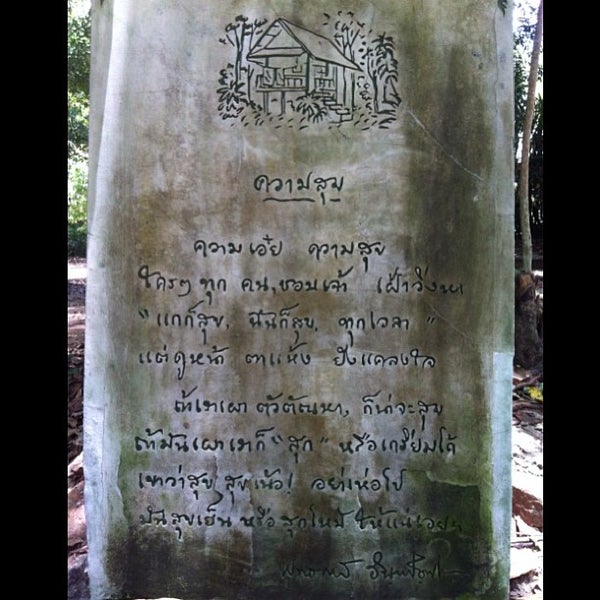 ความสุข
ความเอ๋ย ความสุข
ใครๆ ทุก คน, ชอบเจ้า เฝ้าวิ่งหา
"แกก็สุข, ฉันก็สุข, ทุกเวลา"
แต่ดูหน้า ตาแห้ง ยังแคลงใจ
ถ้าเราเผา ตัวตัณหา, ก็น่าจะสุข
ถ้ามันเผาเราก็ "สุก" หรือเกรียมได้
เขาว่าสุข สุขเน้อ! อย่าเห่อไป
มันสุขเย็น หรือ สุกไหม้ ให้แน่เอยฯ
พุทธทาส อินทปัญโญ